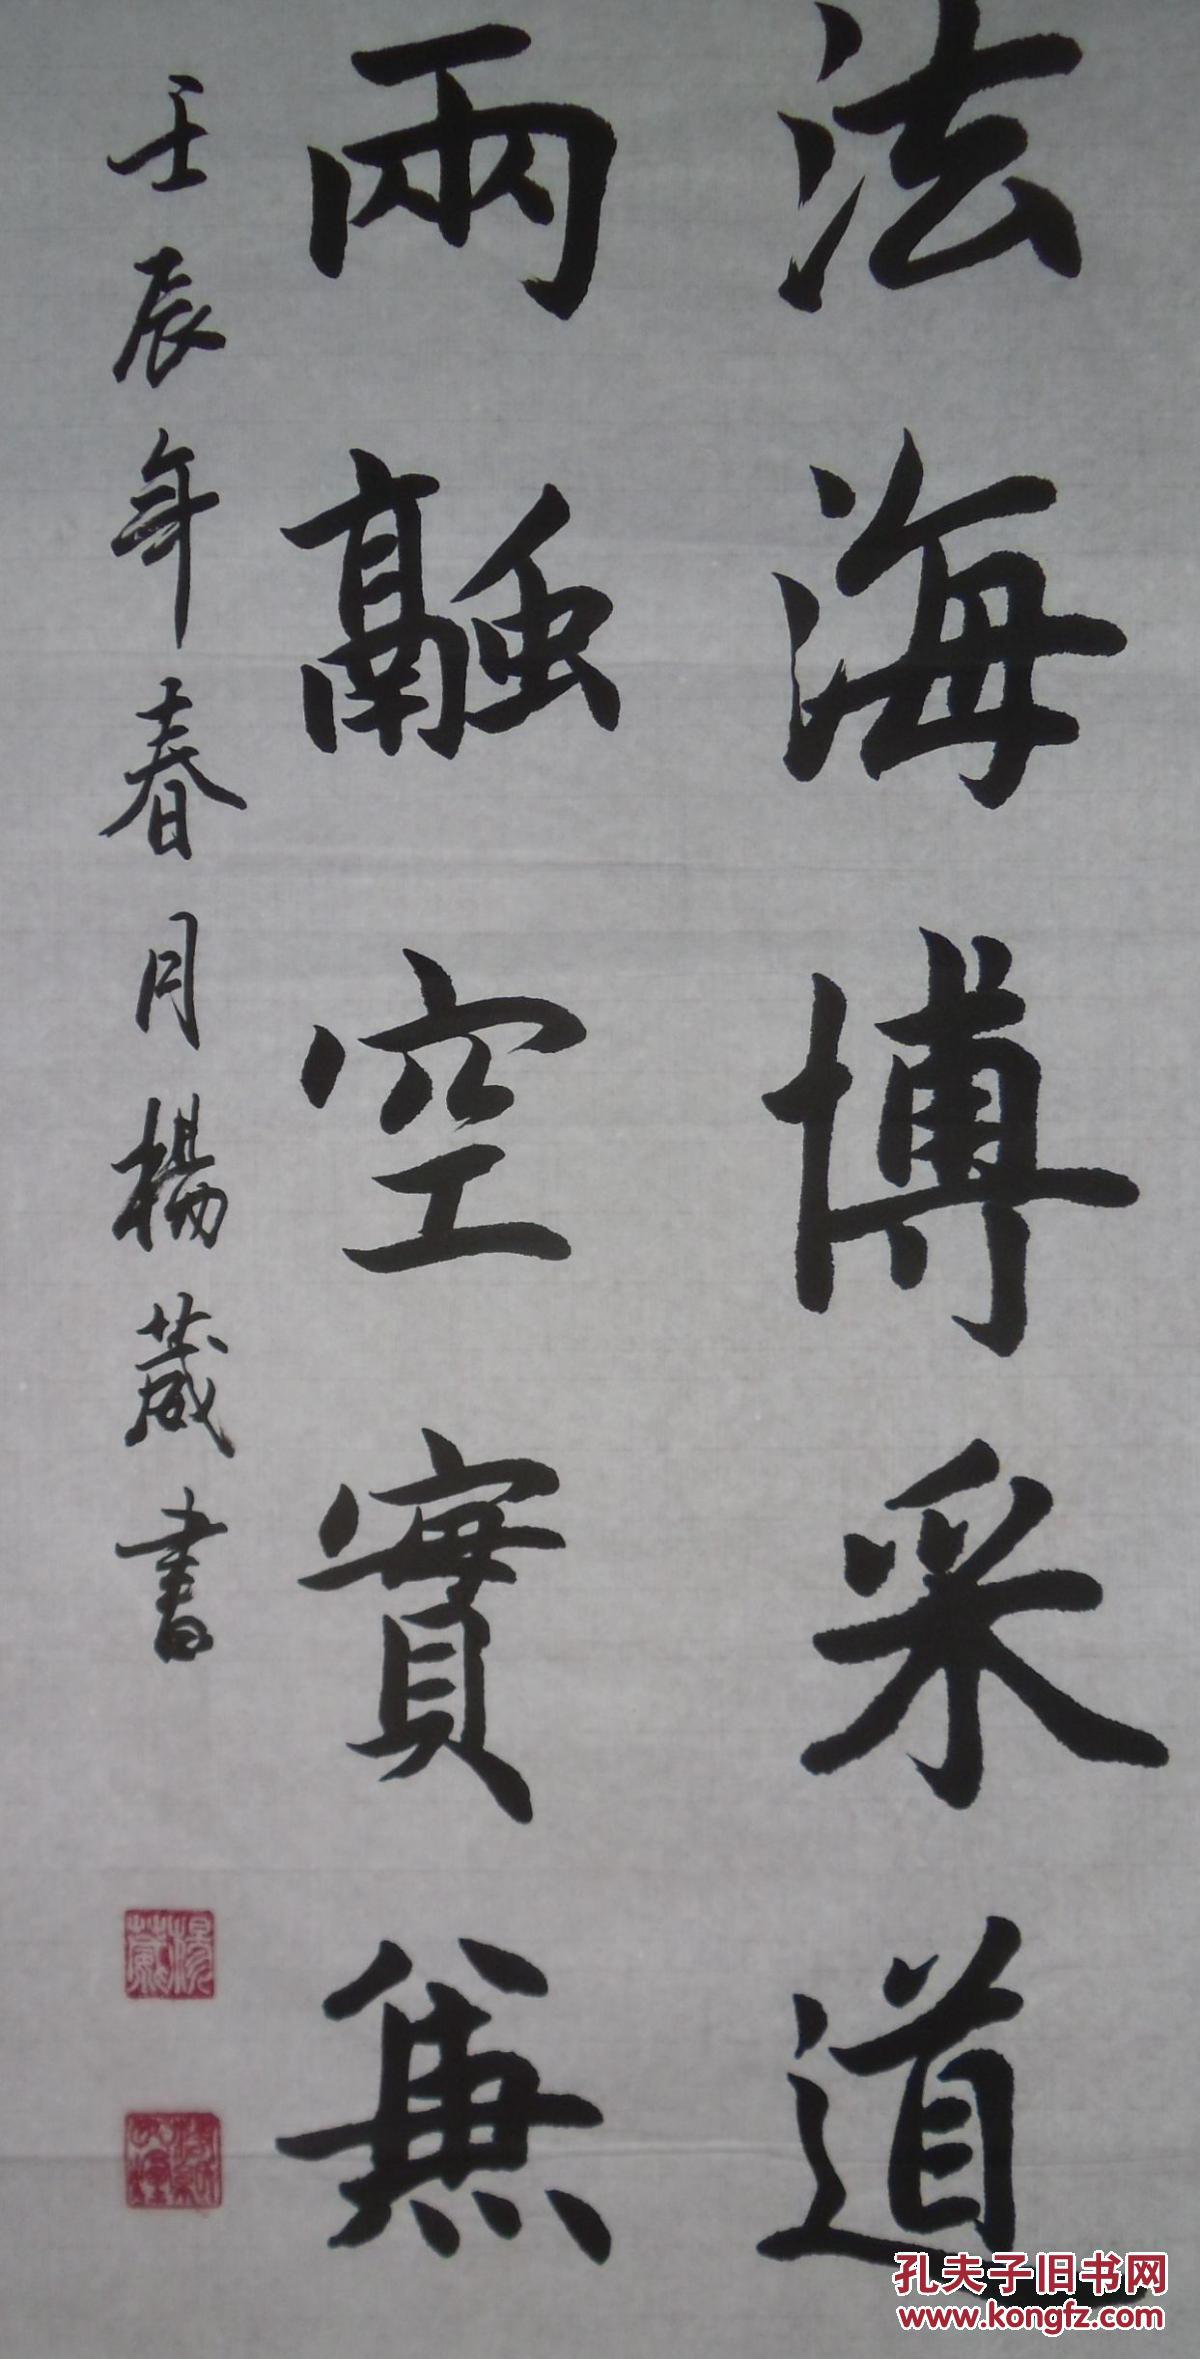 法海博采道
兩融空實兼
壬辰年春月楊葳書
孔夫子旧书网
www.kongfz.com